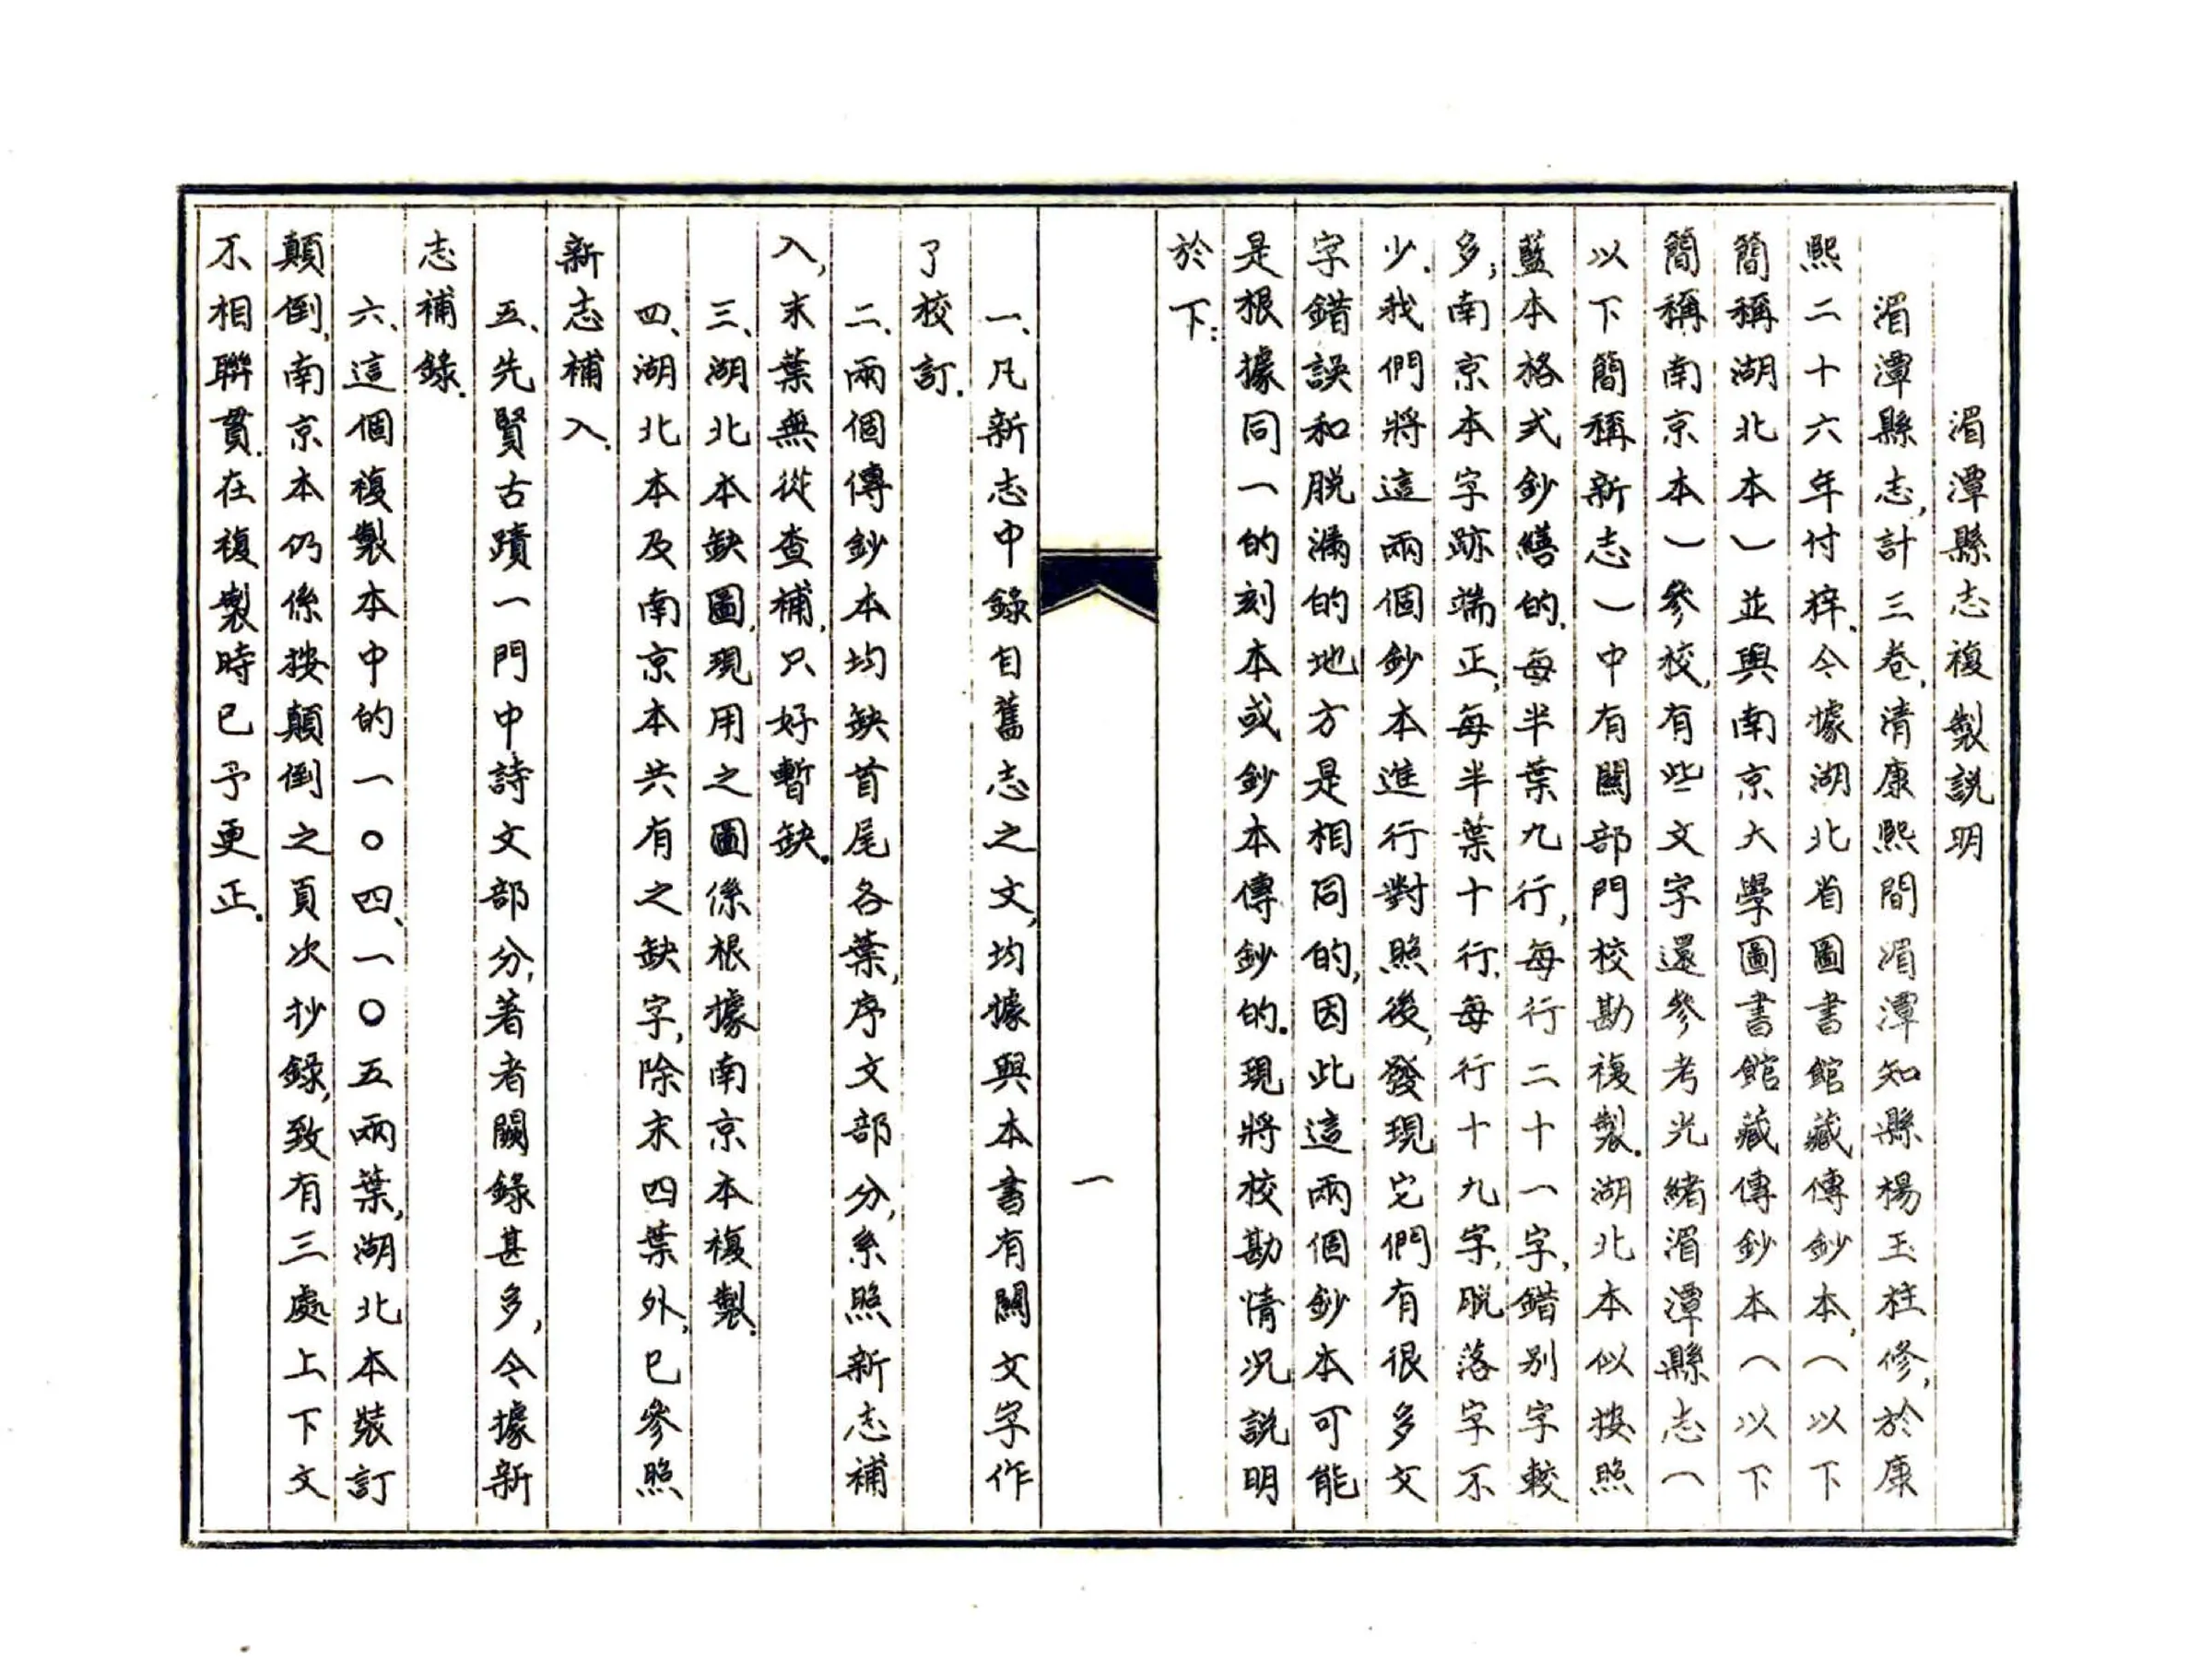 湄潭縣志複製説明
湄潭縣志,計三卷,清康熙間湄潭知縣楊玉柱修,於康
熙二十六年付梓.今據湖北省圖書館藏傳鈔本,(以下
簡稱湖北本)並與南京大學圖書館藏傳鈔本(以下
簡稱南京本)參校,有些文字還參考光緒湄潭縣志(
以下簡稱新志)中有關部門校勘複製.湖北本似按照
藍本格式鈔繕的.每半葉九行,每行二十一字,錯别字較
多;南京本字跡端正,每半葉十行.每行十九字,脱落字不
少.我們將這兩個鈔本進行對照後,發現它們有很多文
字錯誤和脱漏的地方是相同的,因此這兩個鈔本可能
是根據同一的刻本或鈔本傳鈔的.現將校勘情况説明
於下:
一
一、凡新志中錄自舊志之文,均據與本書有關文字作
了校訂.
二、兩個傳鈔本均缺首尾各葉,序文部分,系照新志補
入,末葉無從查補,只好暫缺.
三、湖北本缺圖,現用之圖係根據南京本複製.
四、湖北本及南京本共有之缺字,除末四葉外,已參照
新志補入.
五、先賢古蹟一門中詩文部分,著者闕錄甚多,今據新
志補錄.
六、這個複製本中的一〇四、一〇五兩葉,湖北本裝訂
顛倒,南京本仍係按顛倒之頁次抄錄,致有三處上下文
不相聯貫.在複製時已予更正.